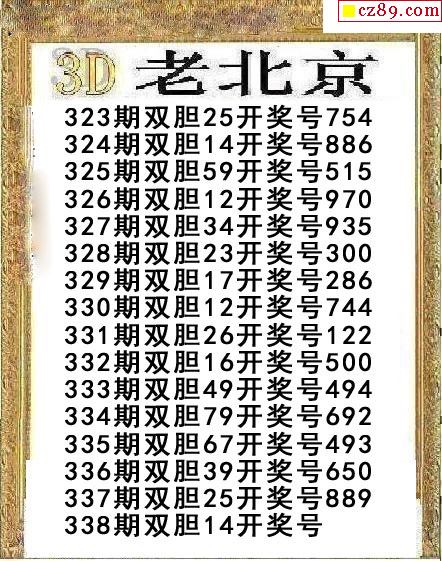 cz89.com
3D 老北京
323期双胆25开奖号754
324期双胆14开奖号886
325期双胆59开奖号515
326期双胆12开奖号970
327期双胆34开奖号935
328期双胆23开奖号300
329期双胆17开奖号286
330期双胆12开奖号744
331期双胆26开奖号122
332期双胆16开奖号500
333期双胆49开奖号494
334期双胆79开奖号692
335期双胆67开奖号493
336期双胆39开奖号650
337期双胆25开奖号889
338期双胆14开奖号